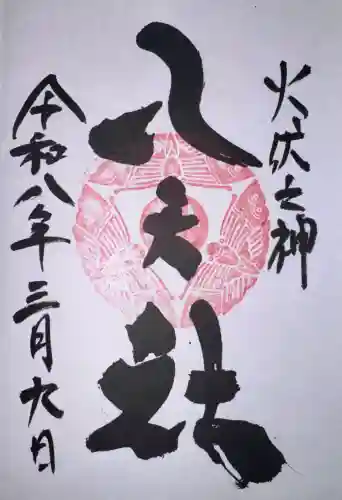 火伏之神
八天社
令和八年三月九日